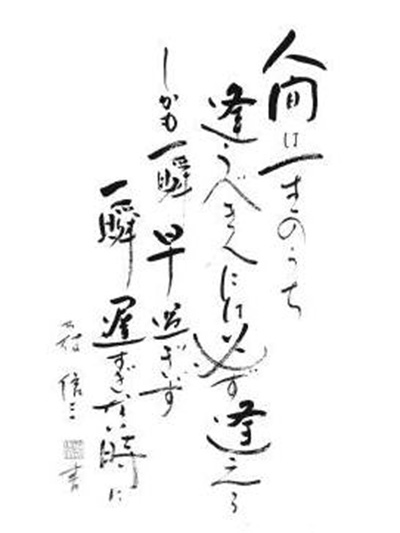 人間は一生のうち
逢うべき人には必ず逢える
しかも一瞬早過ぎず
一瞬遅すぎない時に
信三 書